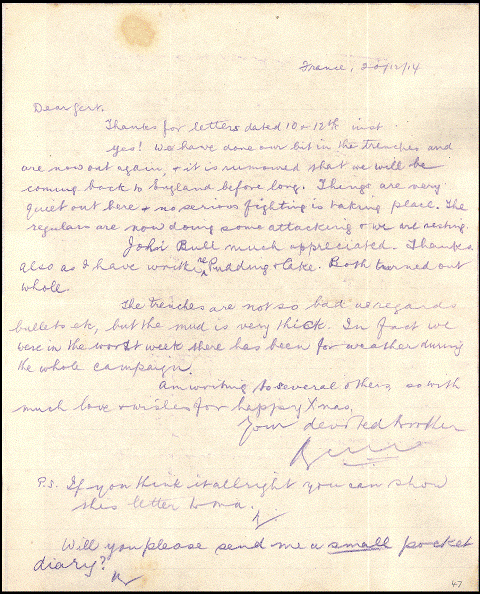 France, 20/12/14
Dear Gert.
Thanks for letters dated 10 & 12th inst
Yes! We have done our bit in the trenches and
are now out again, & it is rumoured that we will be
coming back to England before long. Things are very
quiet out here & no serious fighting is taking place. The
regulars are now doing some attacking & we are resting.
John Bull much appreciated. Thanks
also as I have written re Pudding & Cake. Both turned out
whole.
The trenches are not so bad as regards
bullets etc, but the mud is very thick. In fact we
were in the worst week there has been for weather during
the whole campaign.
Am writing to several others, so with
much love & wishes for happy Xmas.
Your devoted brother
P.S. If you think it allright you can show
this letter to ma.
Will you please send me a small pocket
diary?
47